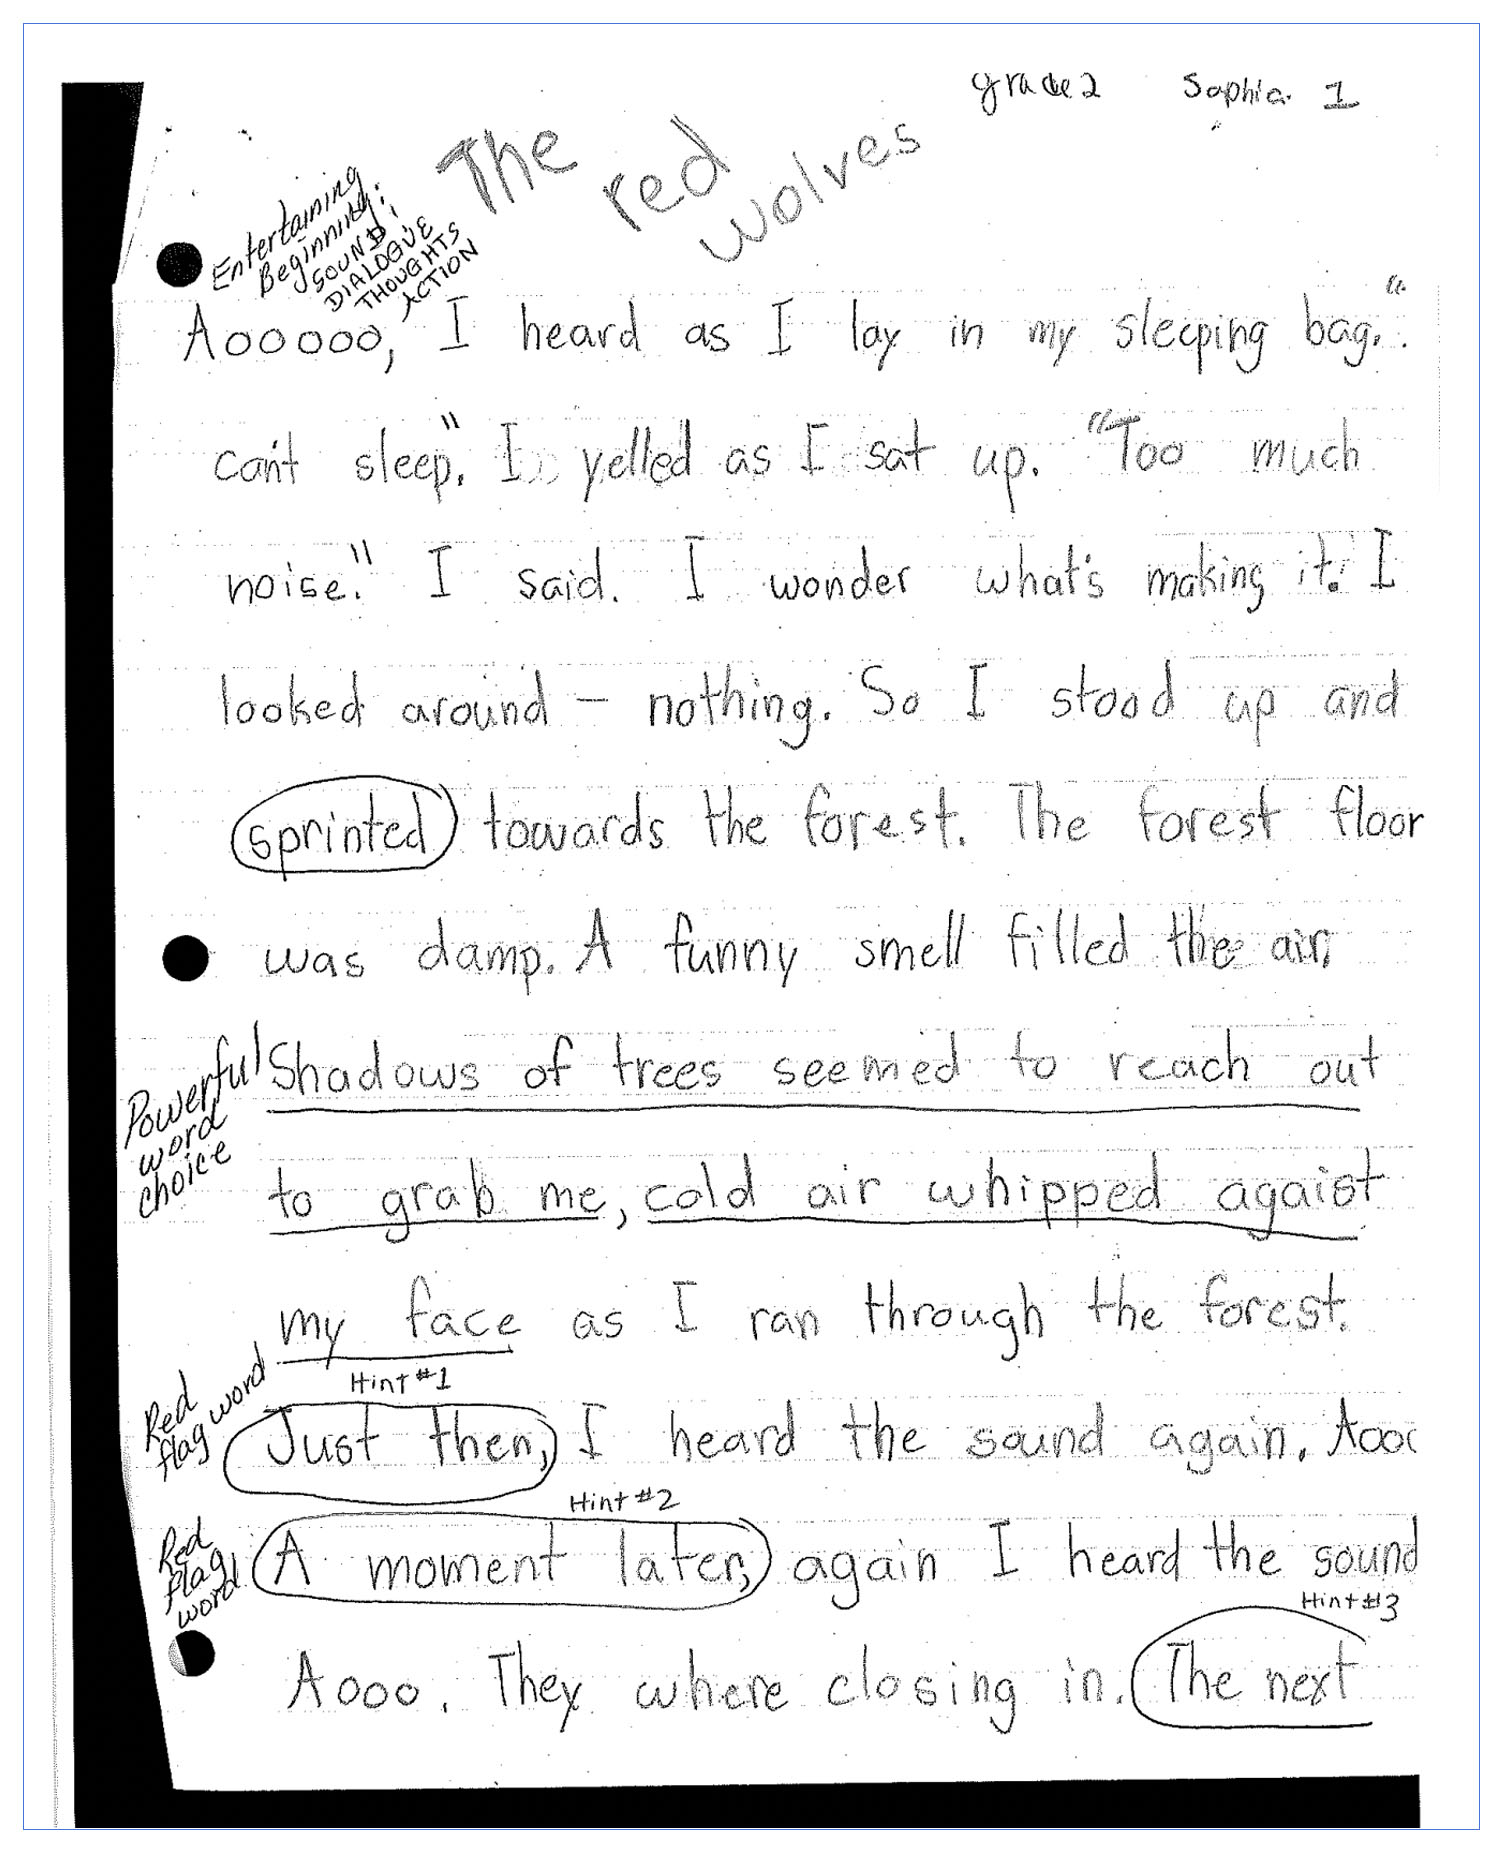 grade 2 Sophia 1
The red wolves
Entertaining
Beginning:
SOUND,
DIALOGUE
THOUGHTS
ACTION
Aooooo, I heard as I lay in my sleeping bag. "
can't sleep." I yelled as I sat up. "Too much
noise." I said. I wonder what's making it. I
looked around – nothing. So I stood up and
sprinted towards the forest. The forest floor
was damp. A funny smell filled the air.
Powerful
word
choice
Shadows of trees seemed to reach out
to grab me, cold air whipped agaist
my face as I ran through the forest.
Red
flag word
Hint #1
Just then, I heard the sound again. Aooo
Hint #2
Red
flag
word
A moment later, again I heard the sound
Hint #3
Aooo. They where closing in. The next